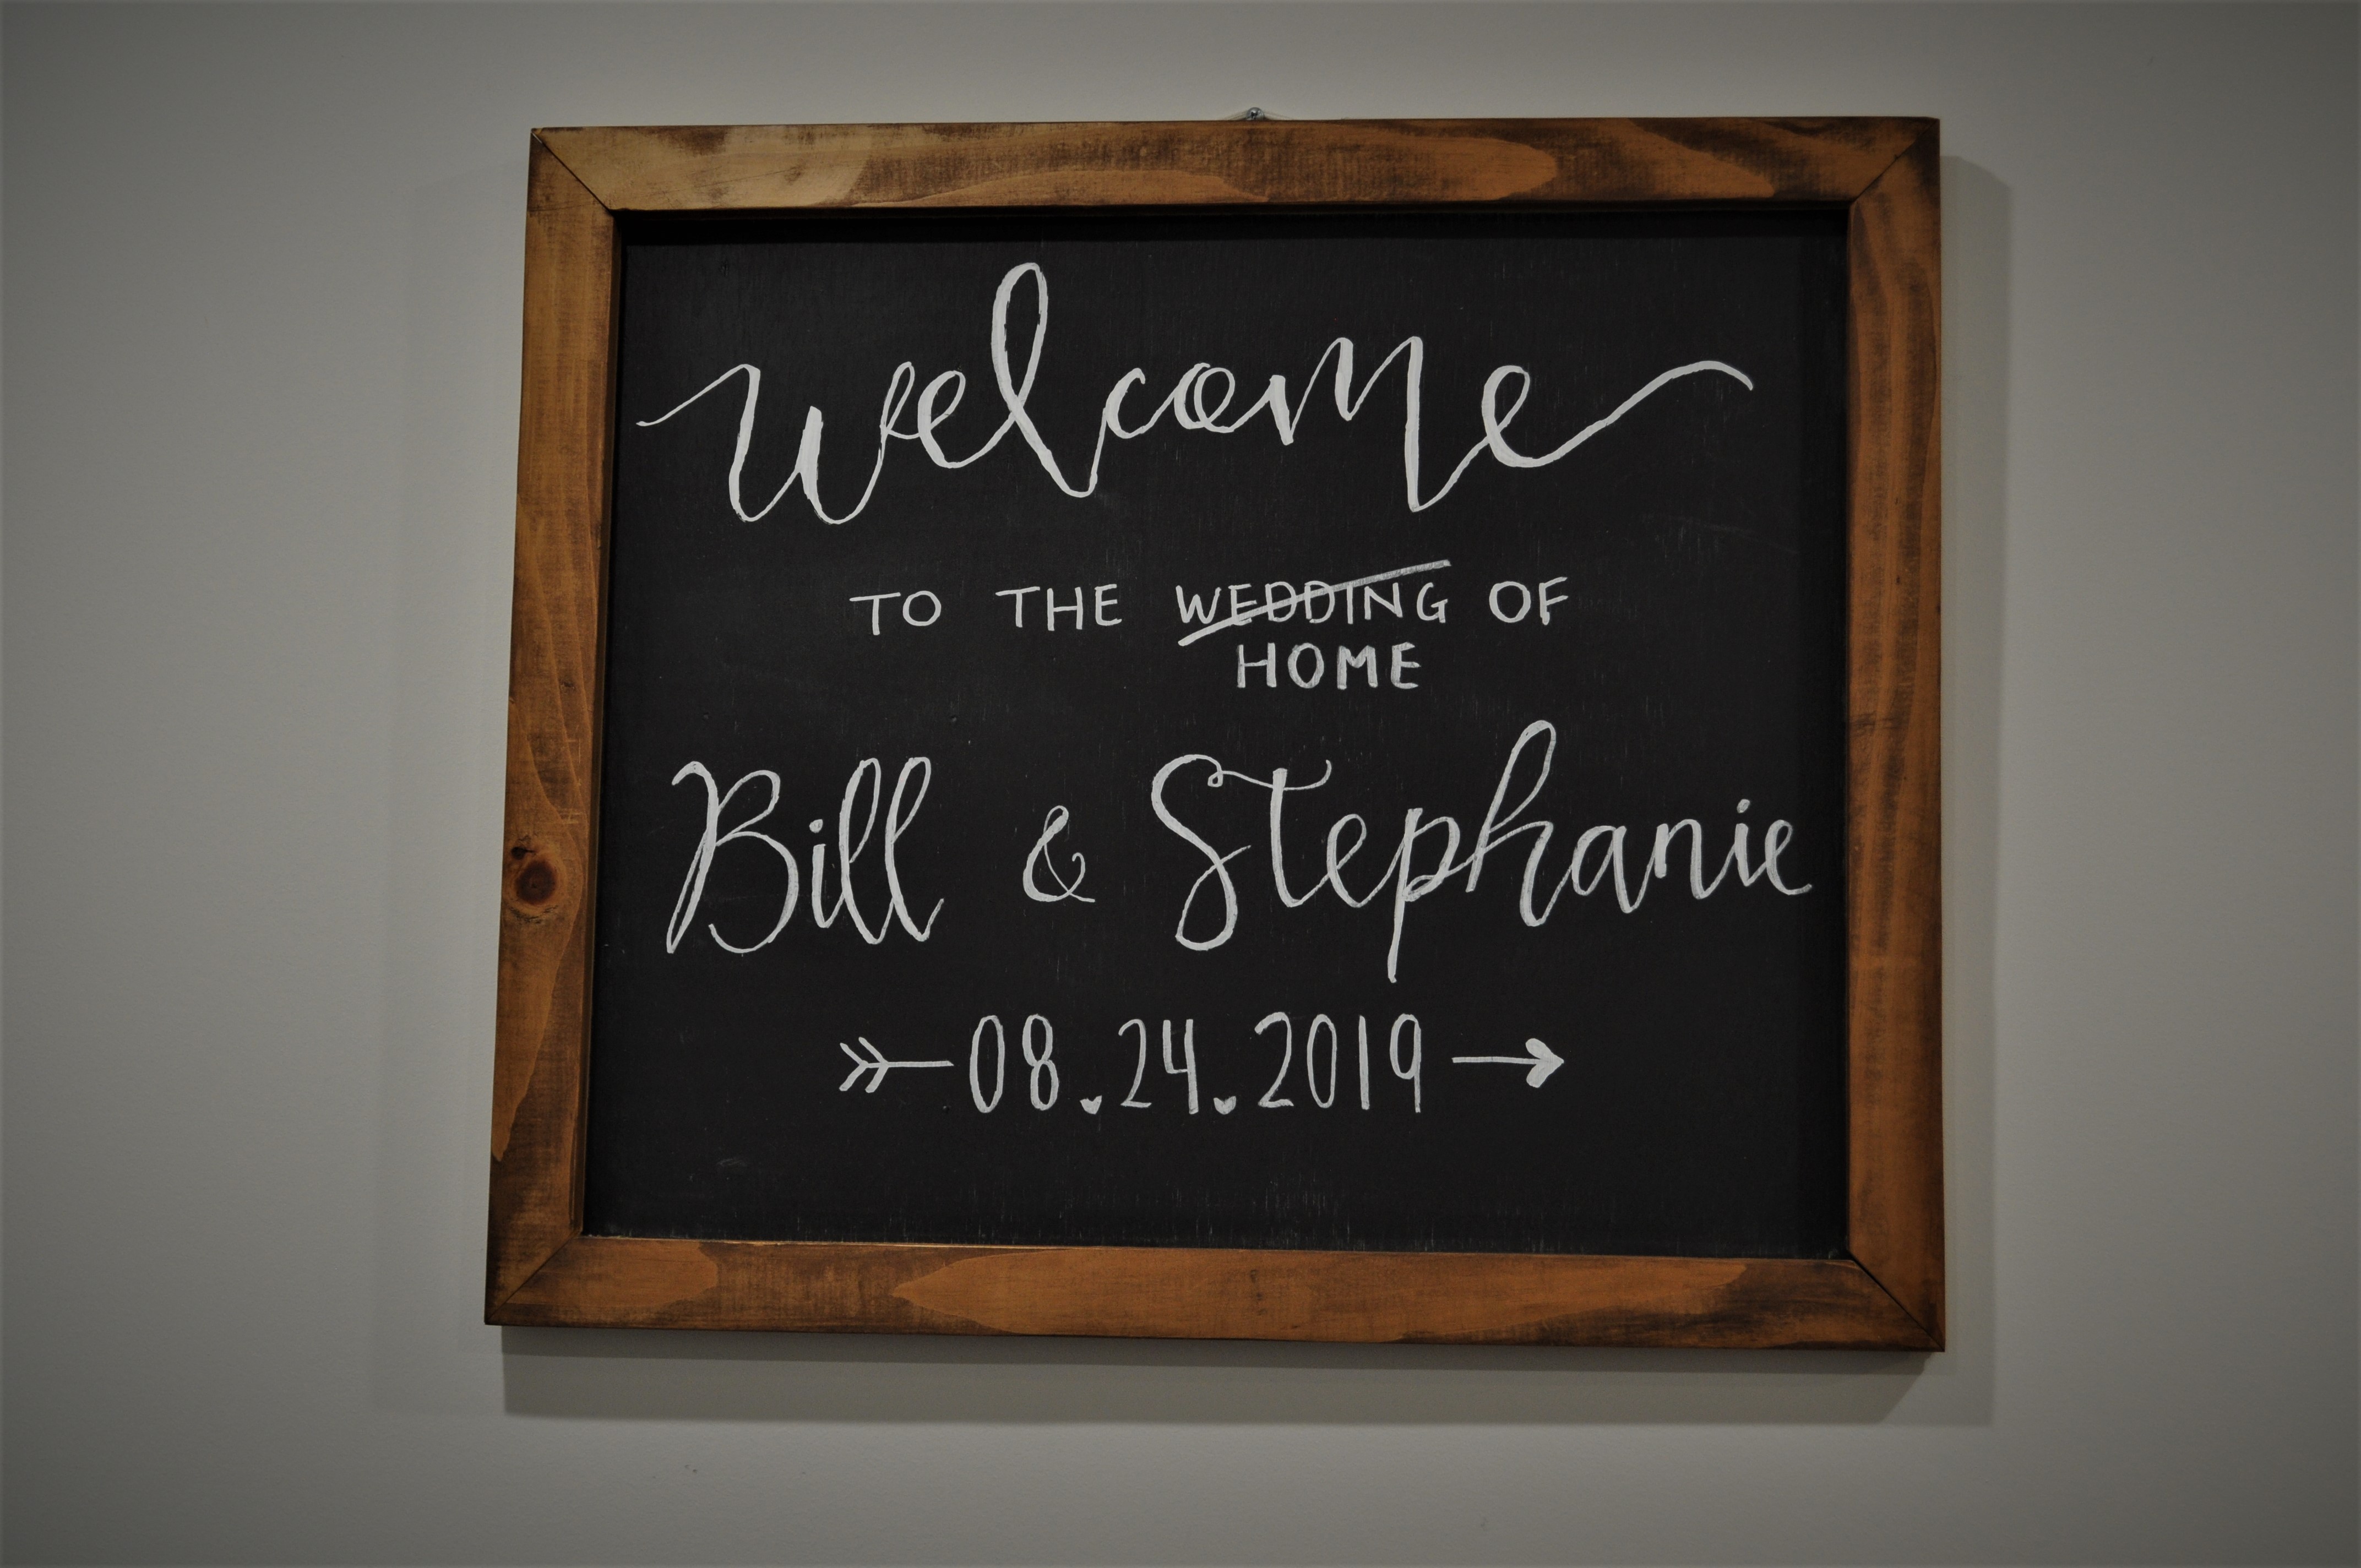 welcome
TO THE WEDDING OF
HOME
Bill & Stephanie
08.24.2019